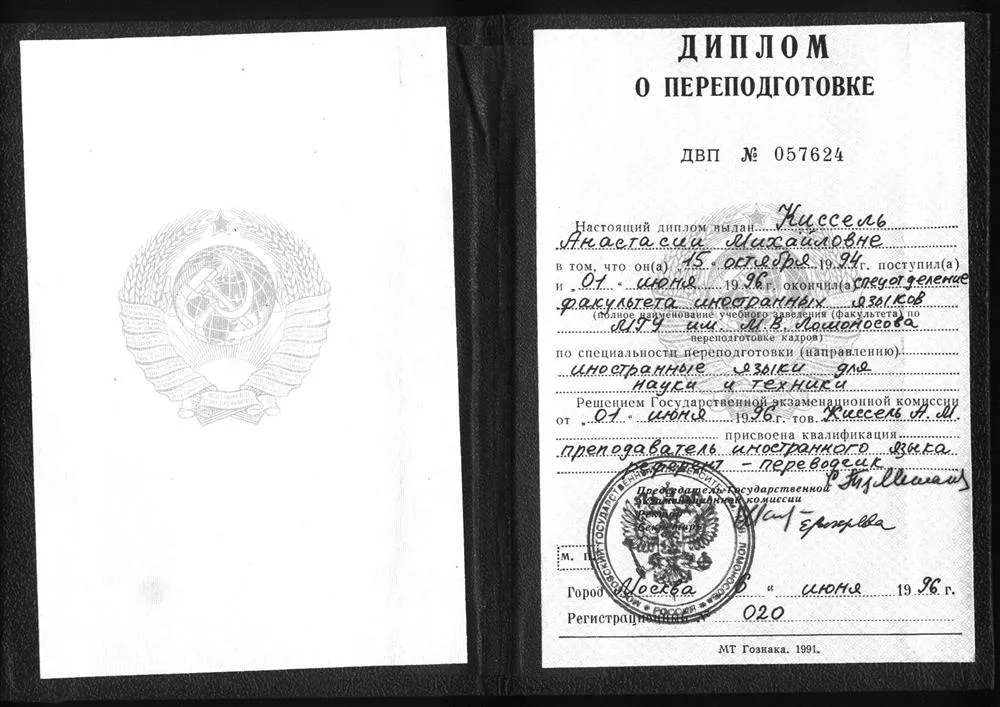 ДИПЛОМ
О ПЕРЕПОДГОТОВКЕ
ДВП № 057624
Настоящий диплом выдан Киссель
Анастасии Михайловне
в том, что он(а) „15“ октября 1994 г. поступил(а)
и „01“ июня 1996 г. окончил(а) спецотделение
факультета иностранных языков
(полное наименование учебного заведения (факультета) по
МГУ им. М.В. Ломоносова
переподготовке кадров)
по специальности переподготовки (направлению)
иностранные языки для
науки и техники
Решением Государственной экзаменационной комиссии
от „01“ июня 1996 г. тов. Киссель А.М.
присвоена квалификация
преподаватель иностранного языка
референт – переводчик
Председатель Государственной
экзаменационной комиссии
Ректор
Секретарь
М. П.
Город Москва 6 “ июня 1996 г.
Регистрационный № 020
МТ Гознака. 1991.